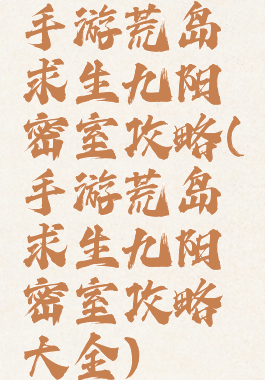 手游荒岛
求生九阳
密室攻略(
手游荒岛
求生九阳
密室攻略
大全)